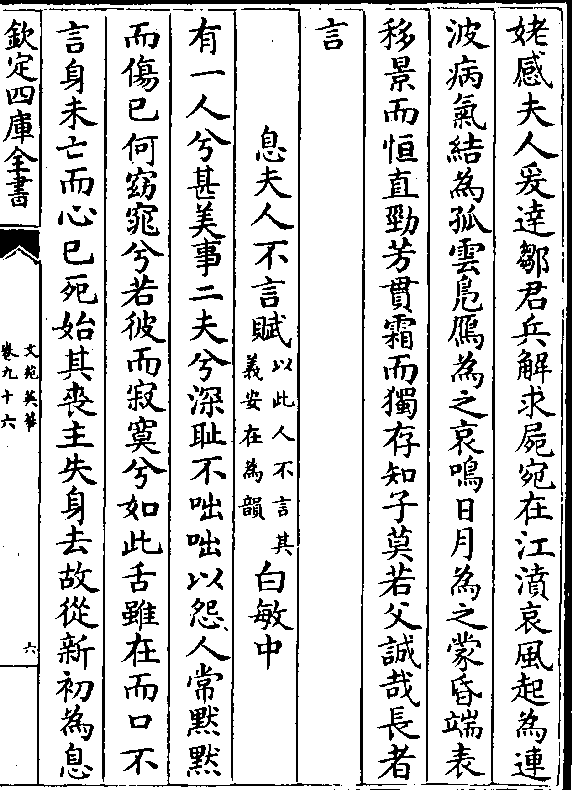 姥感夫人爰達鄒君兵解求屍宛在江濆哀風起為連
波病氣結為孤雲鳧鴈為之哀鳴日月為之蒙昏端表
移景而恒直勁芳貫霜而獨存知子莫若父誠哉長者
言
息夫人不言賦以此人不言其義安在為韻 白敏中
有一人兮甚美事二夫兮深恥不咄咄以怨人常默默
而傷已何窈窕兮若彼而寂寞兮如此舌雖在而口不
言身未亡而心已死始其喪主失身去故從新初為息
欽定四庫全書
文苑英華
卷九十六
六